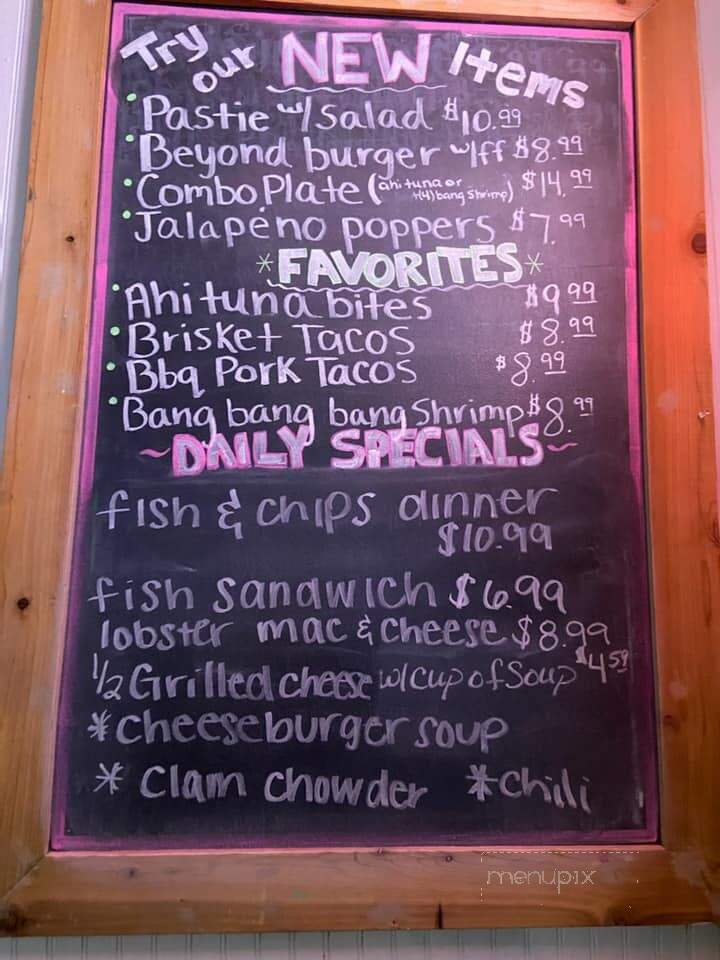 Try our NEW Items
Pastie w/salad $10.99
Beyond burger w/ff $8.99
Combo Plate (ahi tuna or (4) bang shrimp) $14.99
Jalapeño poppers $7.99
*FAVORITES*
Ahi tuna bites $9.99
Brisket Tacos $8.99
Bbq Pork Tacos $8.99
Bang bang bang shrimp $8.99
~DAILY SPECIALS~
fish & chips dinner
$10.99
fish sandwich $6.99
lobster mac & cheese $8.99
1/2 Grilled cheese w/cup of Soup $4.59
*cheeseburger soup
* clam chowder *chili
menupix